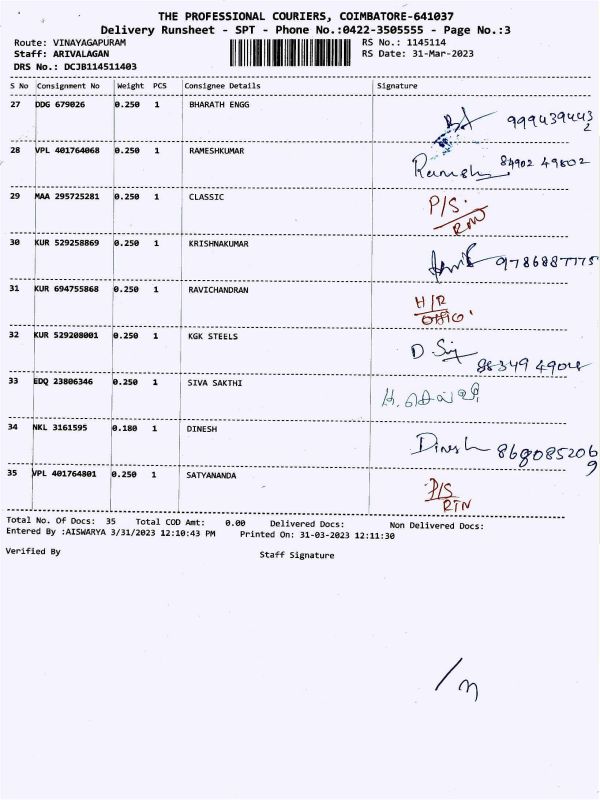 THE PROFESSIONAL COURIERS, COIMBATORE-641037
Delivery Runsheet - SPT - Phone No.:0422-3505555 - Page No.:3
Route: VINAYAGAPURAM RS No.: 1145114
Staff: ARIVALAGAN RS Date: 31-Mar-2023
DRS No.: DCJB114511403
S No Consignment No Weight PCS Consignee Details Signature
27 DDG 679026 0.250 1 BHARATH ENGG 9994394432
28 VPL 401764068 0.250 1 RAMESHKUMAR Ramesh 84902 49802
29 MAA 295725281 0.250 1 CLASSIC P/S. RTN
30 KUR 529258869 0.250 1 KRISHNAKUMAR 9786887775
31 KUR 694755868 0.250 1 RAVICHANDRAN H/R
32 KUR 529208001 0.250 1 KGK STEELS
33 EDQ 23806346 0.250 1 SIVA SAKTHI
34 NKL 3161595 0.180 1 DINESH Dinesh 8680852069
35 VPL 401764801 0.250 1 SATYANANDA P/S RTN
Total No. Of Docs: 35 Total COD Amt: 0.00 Delivered Docs: Non Delivered Docs:
Entered By :AISWARYA 3/31/2023 12:10:43 PM Printed On: 31-03-2023 12:11:30
Verified By Staff Signature